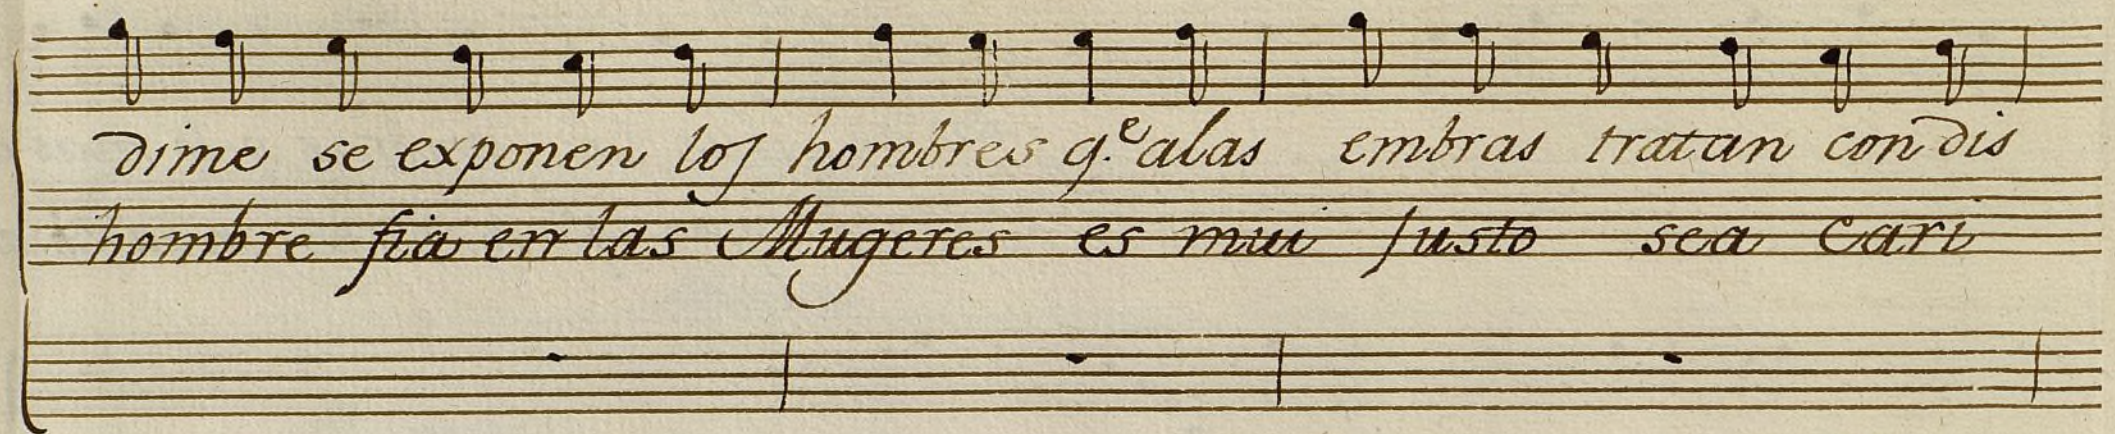 dime se exponen los hombres q.e alas embras tratan con dis
hombre fia en las Mugeres es mui justo sea cari